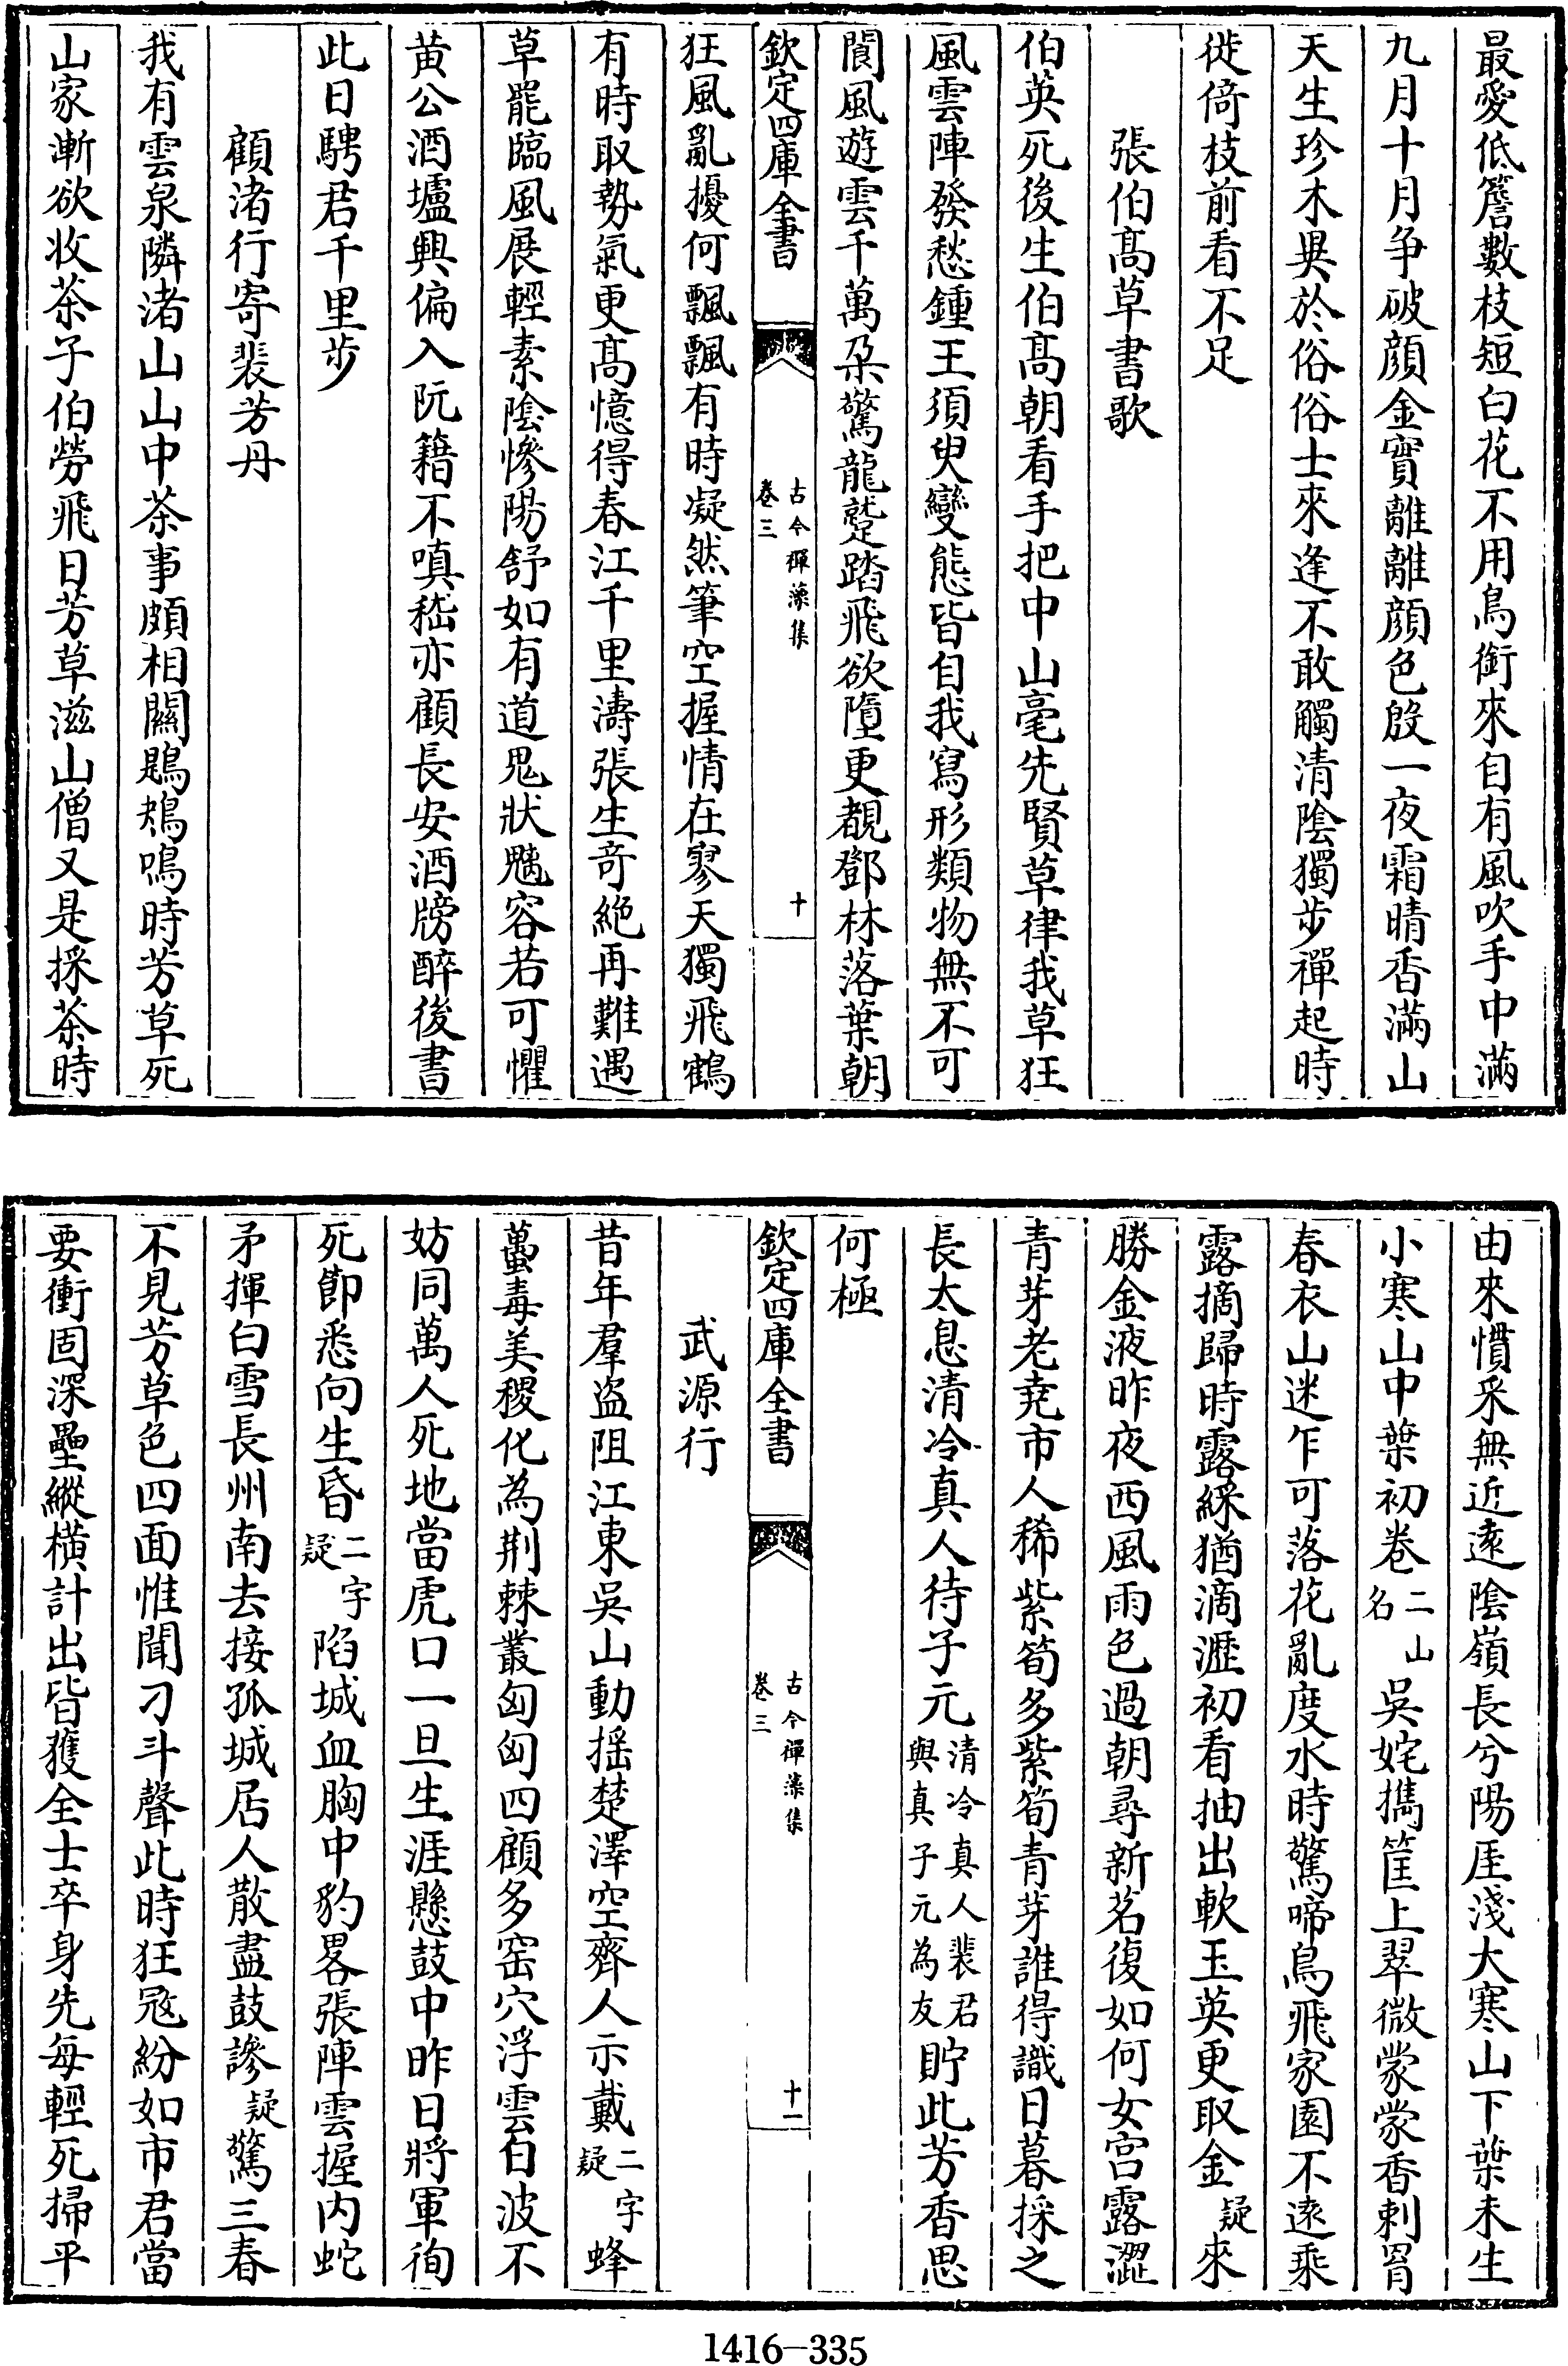 最愛低簷數枝短白花不用鳥銜來自有風吹手中滿
九月十月争破顔金實離離顔色殷一夜霜晴香滿山
天生珍木異於俗俗士來逢不敢觸清陰獨步禪起時
徙倚枝前看不足
張伯髙草書歌
伯英死後生伯髙朝看手把中山毫先賢草律我草狂
風雲陣發愁鍾王須臾變態皆自我寫形類物無不可
閬風遊雲千萬朶驚龍蹙踏飛欲墮更覩鄧林落葉朝
欽定四庫全書
古今禪藻集
卷三
十
狂風亂擾何飄飄有時凝然筆空握情在寥天獨飛鶴
有時取勢氣更髙憶得春江千里濤張生奇絶再難遇
草罷臨風展輕素陰慘陽舒如有道鬼狀魑容若可懼
黄公酒壚興偏入阮籍不嗔嵇亦顧長安酒牓醉後書
此日騁君千里步
顧渚行寄裴芳丹
我有雲泉隣渚山山中茶事頗相闗鶗鴂鳴時芳草死
山家漸欲收茶子伯勞飛日芳草滋山僧又是採茶時
由來慣采無近逺陰嶺長兮陽厓淺大寒山下葉未生
小寒山中葉初卷二山名吳姹擕筐上翠微䝉䝉香刺罥
春衣山迷乍可落花亂度水時驚啼鳥飛家園不逺乘
露摘歸時露綵猶滴瀝初看抽出軟玉英更取金疑來
勝金液昨夜西風雨色過朝尋新茗復如何女宫露澀
青芽老堯市人稀紫筍多紫筍青芽誰得識日暮採之
長太息清冷真人待子元清冷真人裴君與真子元為友貯此芳香思
何極
欽定四庫全書
古今禪藻集
卷三
十一
武源行
昔年羣盗阻江東吳山動揺楚澤空齊人示戴二字疑蜂
蠆毒美稷化為荆棘叢匈匈四顧多窑穴浮雲白波不
妨同萬人死地當虎口一旦生涯懸鼓中昨日將軍徇
死節悉向生昏二字疑陷城血胸中豹畧張陣雲握内蛇
矛揮白雪長州南去接孤城居人散盡鼓謲疑驚三春
不見芳草色四面惟聞刁斗聲此時狂冦紛如市君當
要衝固深壘縱橫計出皆獲全士卒身先每輕死掃平
1416-335